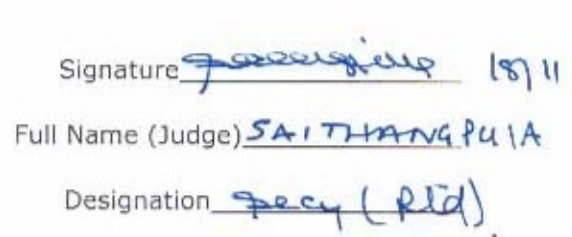 Signature 18/11
Full Name (Judge) SAITHANGPUIA
Designation Secy (Rtd)